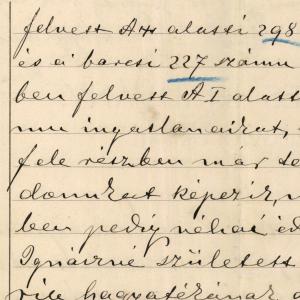 felvett A+ alatti 298
és a barcsi 227 számu
ben felvett A I alatt
mu ingatlanaikat,
fele részben már te
donukat képezik,
ben pedig néhai éd
Ignáczné született
vits hagyatékának